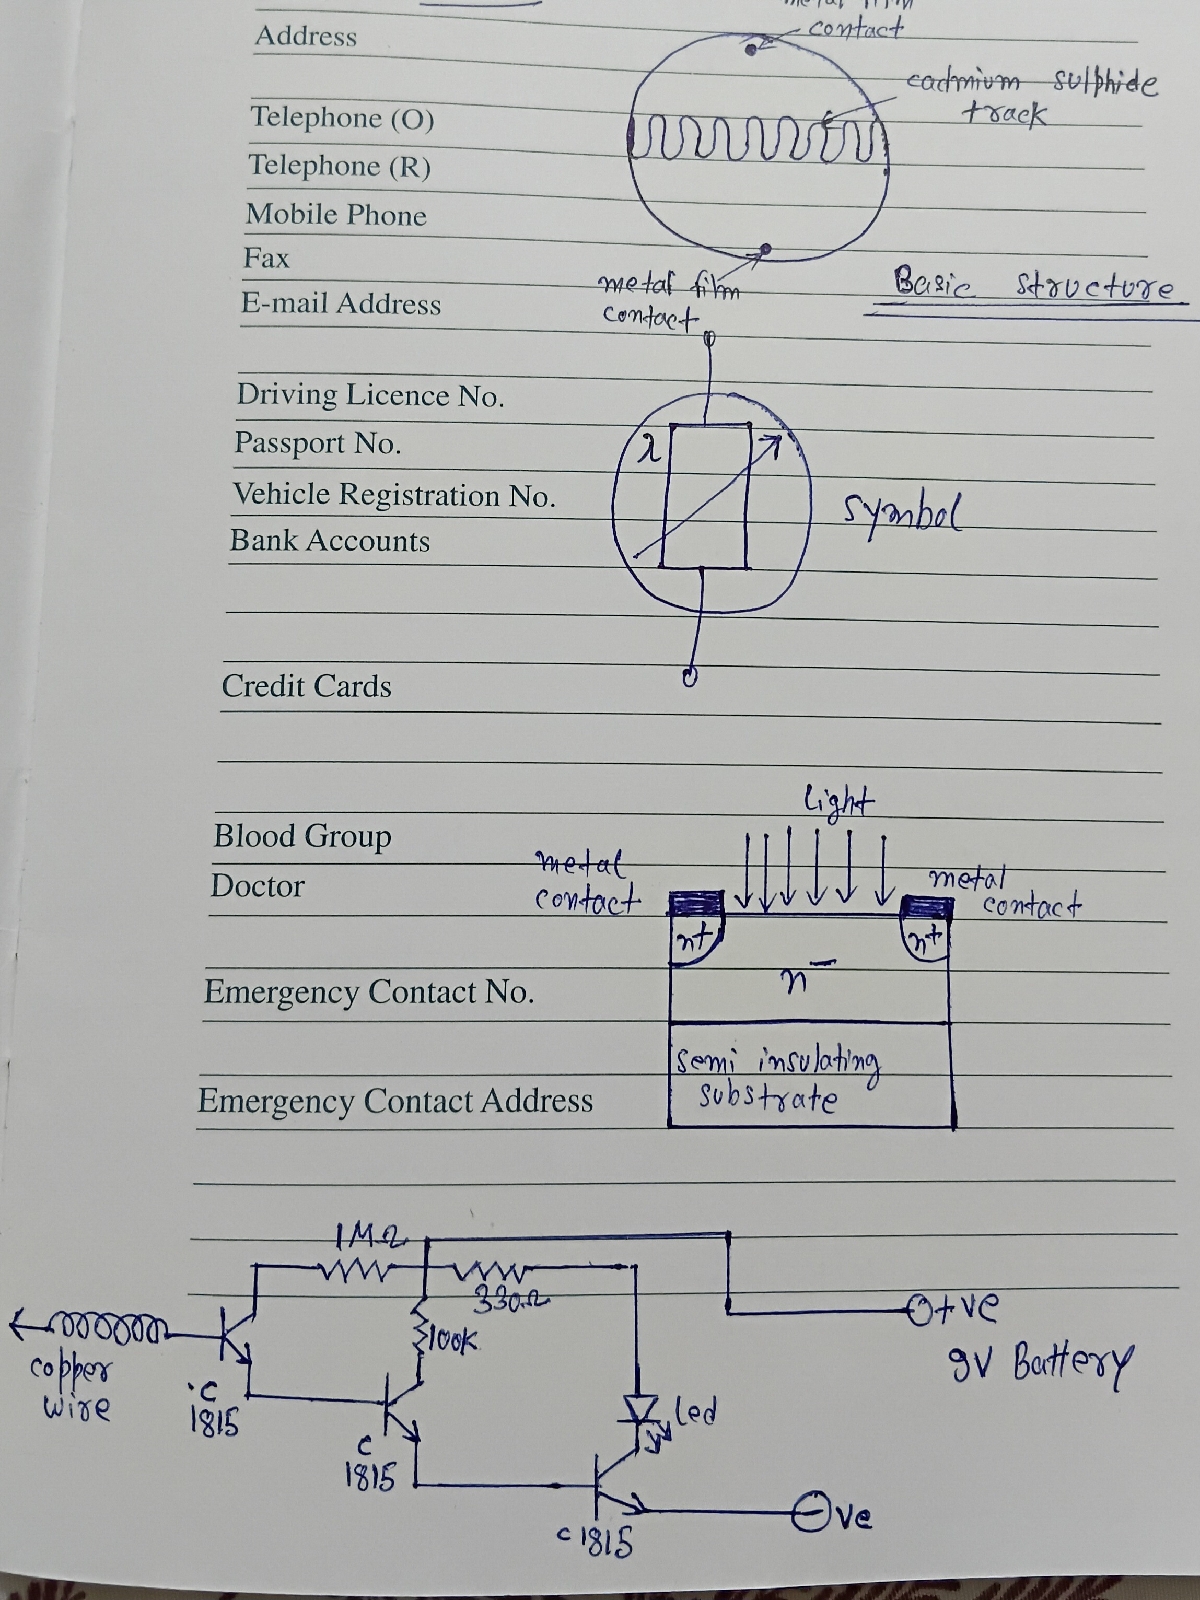 metal film
contact
Address
cadmium sulphide
track
Telephone (O)
Telephone (R)
Mobile Phone
Fax
metal film
contact
Basic structure
E-mail Address
Driving Licence No.
Passport No.
λ
Vehicle Registration No.
symbol
Bank Accounts
Credit Cards
light
Blood Group
metal
contact
Doctor
metal
contact
n+
n+
n-
Emergency Contact No.
semi insulating
substrate
Emergency Contact Address
1MΩ
330Ω
100K
+ve
9V Battery
copper
wire
C
1815
C
1815
Led
C1815
-ve